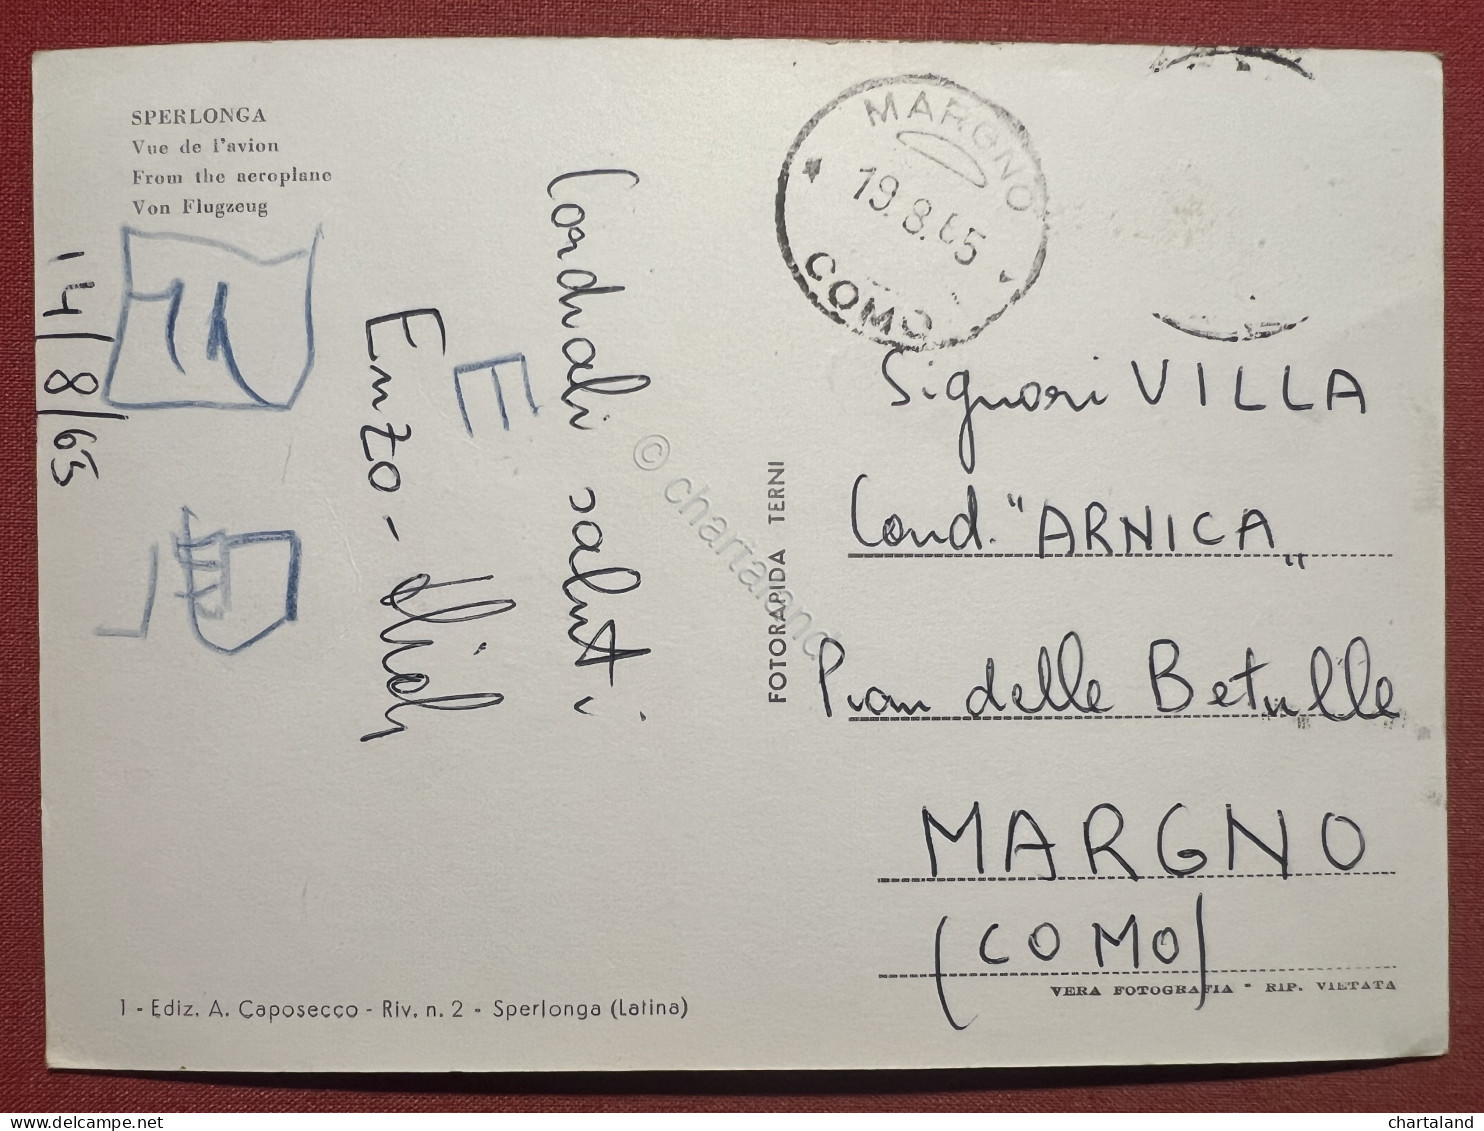 SPERLONGA
Vue de l'avion
From the aeroplane
Von Flugzeug
14/8/65
Cordiali saluti
Enzo -
E
MARGNO
19.8.65
COMO
Signori VILLA
Cond. "ARNICA"
Pian delle Betulle
MARGNO
(COMO)
FOTORAPIDA TERNI
VERA FOTOGRAFIA - RIP. VIETATA
1 - Ediz. A. Caposecco - Riv. n. 2 - Sperlonga (Latina)
© chartaland
chartaland